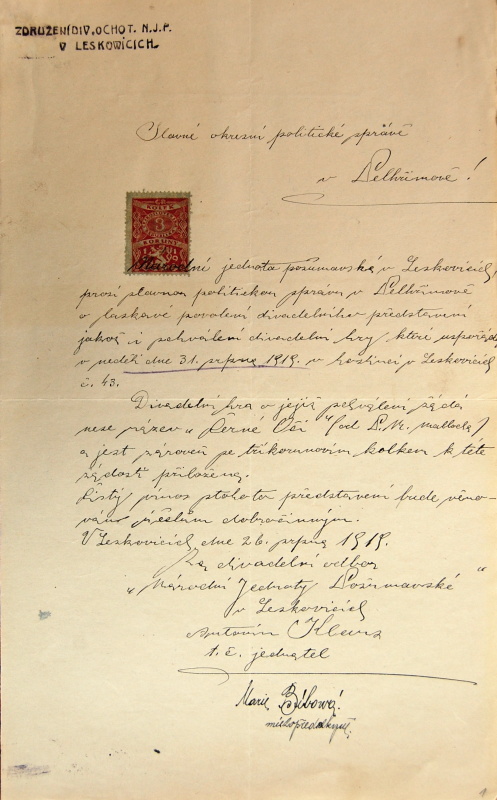 ZDRUŽENÍ DIV. OCHOT. N.J.P.
V LESKOWICÍCH.
Slavné okresní politické správě
v Pelhřimově!
Národní jednota pošumavská v Leskovicích
prosí slavnou politickou správu v Pelhřimově
o laskavé povolení divadelního představení
jakož i schválení divadelní hry, které uspořádá
v neděli dne 31. srpna 1919. v hostinci v Leskovicích
č. 43.
Divadelní hra o jejíž schválení žádá
nese název „Černé Oči"
a jest zároveň po tříkorunovém kolkem k této
žádosti přiložena.
Čistý výnos z tohoto představení bude věno-
ván účelům dobročinným.
V Leskovicích dne 26. srpna 1919.
Za divadelní odbor
„Národní Jednoty Pošumavské"
v Leskovicích
Antonín
t.č. jednatel
Marie Bíbová.
místopředsedkyně.